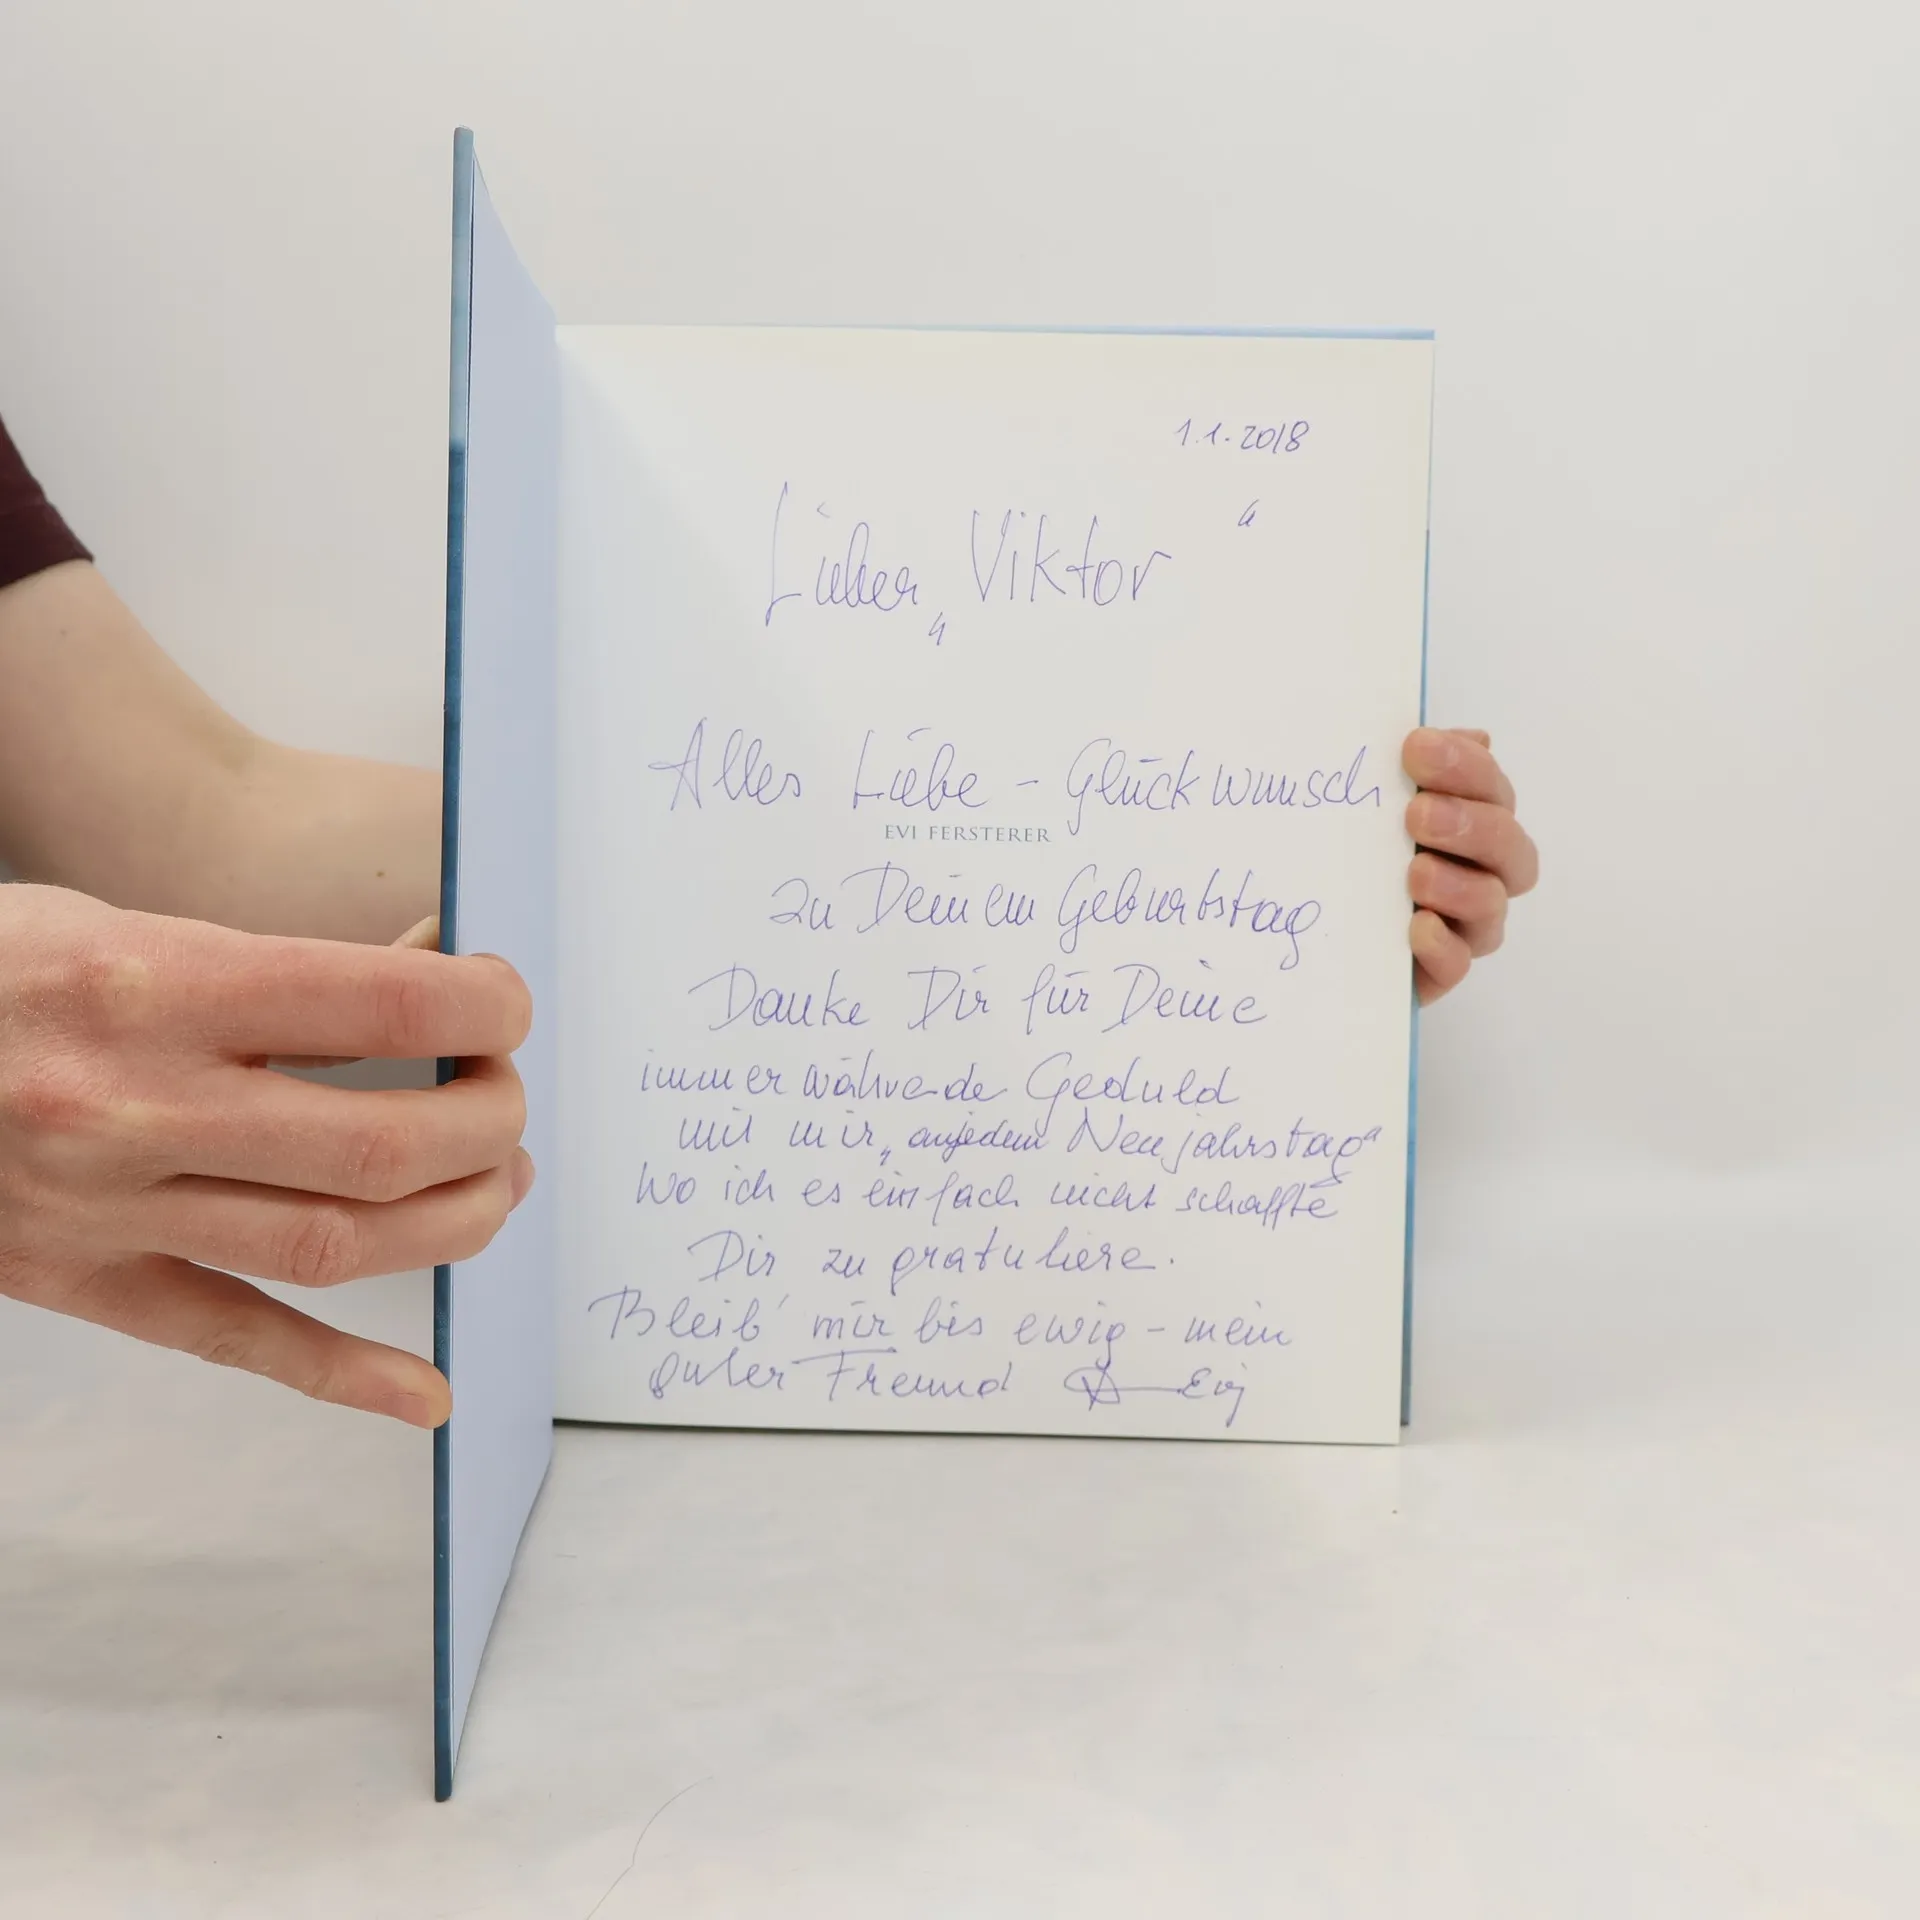 1.1.2018
Lieber „Viktor“
Alles Liebe - Glückwunsch
EVI FERSTERER
zu Deinem Geburtstag
Danke Dir für Deine
immerwährende Geduld
mit mir „anjedem Neujahrstag“
Wo ich es einfach nicht schaffte
Dir zu gratuliere.
Bleib' mir bis ewig - mein
guter Freund Evi